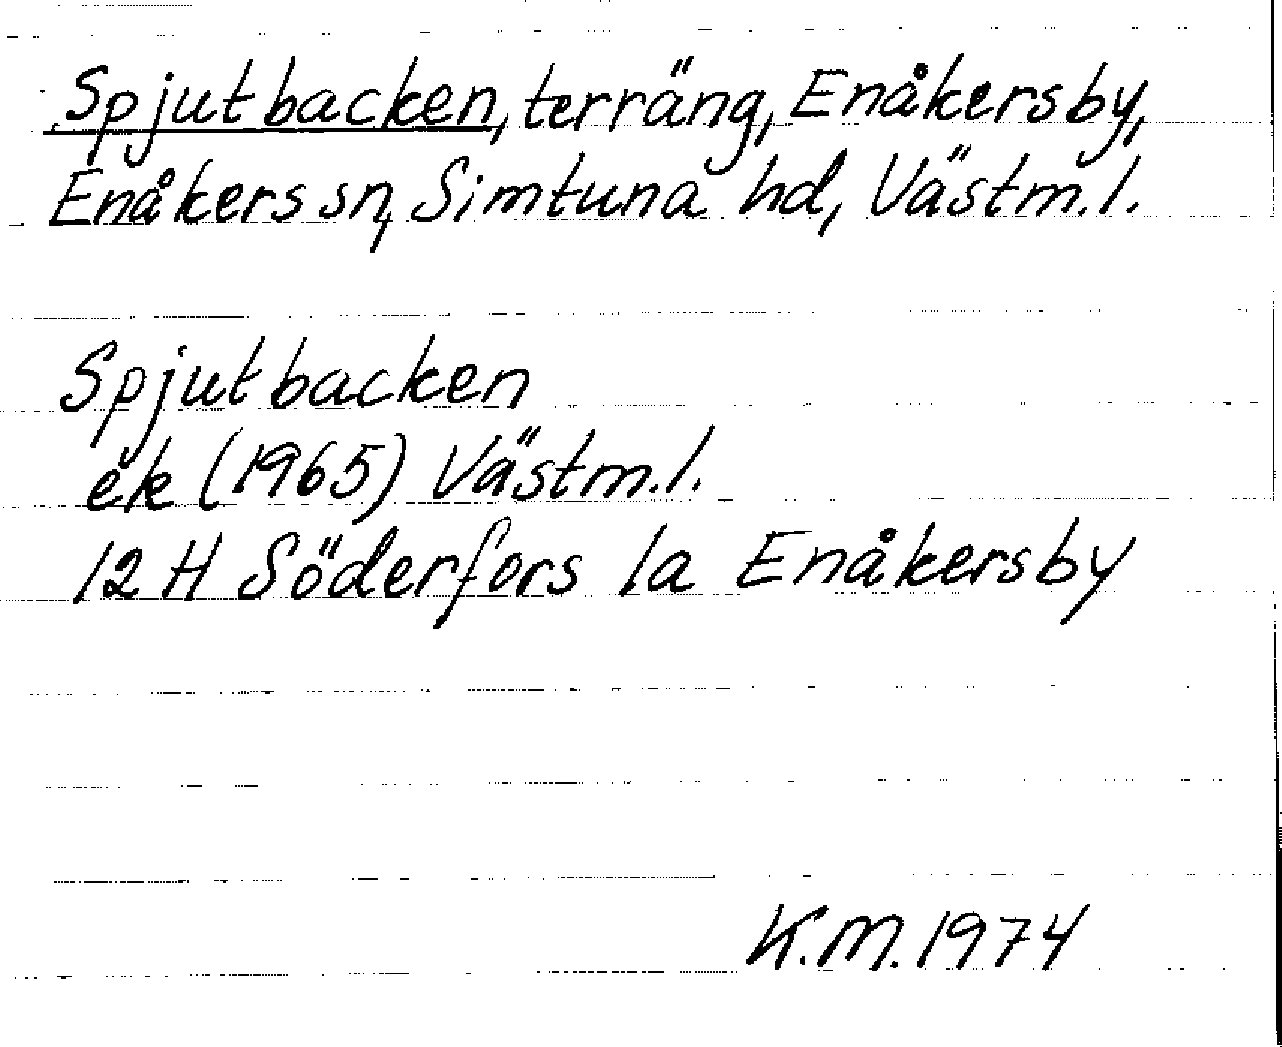 Spjutbacken, terräng, Enåkersby,
Enåkers sn, Simtuna hd, Västm.l.
Spjutbacken
ek (1965) Västm.l.
12 H Söderfors 1a Enåkersby
K.M. 1974